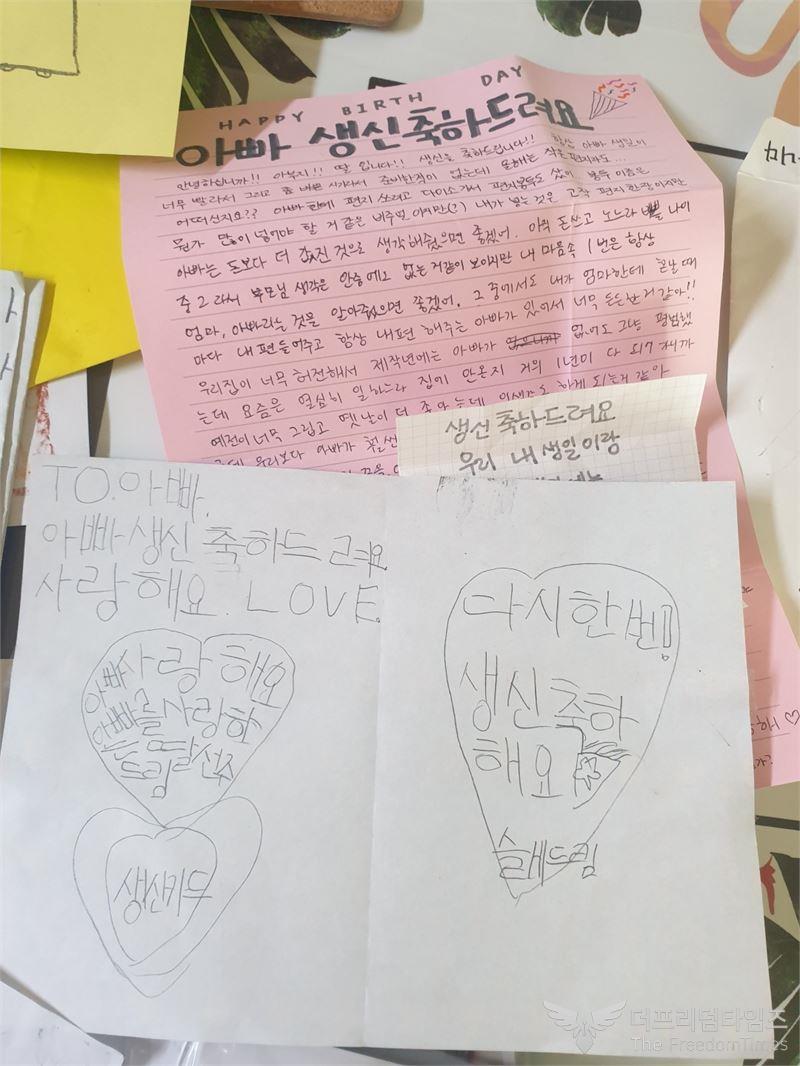 HAPPY BIRTH DAY
아빠 생신축하드려요
안녕하십니까!! 아부지!! 딸 입니다!! 생신을 축하드립니다!! 항상 아빠 생일이
너무 빨라서 그리고 좀 바쁜 시기라서 준비한점이 없는데 올해는 작은 편지라도...
어떠신지요?? 아빠 한테 편지 쓰려고 다이소가서 편지봉투도 샀어 봉투 이름은
뭔가 많이 넣어야 할 거 같은 비주얼 이지만(?) 내가 넣는 것은 고작 편지 한장 이지만
아빠는 돈보다 더 값진 것으로 생각해줬으면 좋겠어. 아직 돈쓰고 노느라 나이
중2 라서 부모님 생각은 안중에도 없는거 같이 보이지만 내 마음속 1번은 항상
엄마, 아빠라는 것을 알아줬으면 좋겠어. 그 중에서도 내가 엄마한테 혼날 때
마다 내 편 들어주고 항상 내편 해주는 아빠가 있어서 너무 든든한 거 같아!!
우리집이 너무 허전해서 재작년에는 아빠가 없어도 그냥 평범했
는데 요즘은 열심히 일하느라 집에 안온지 거의 1년이 다 되가니까
예전이 너무 그립고 옛날이 더 좋아는데 하게 되는거 같아
우리보다 아빠가 훨씬
생선 축하드려요
우리 내 생일이랑
TO.아빠.
아빠생신 축하드려요
사랑해요. LOVE.
아빠사랑해요
아빠를사랑하
는 딸
드림
생신카드
다시한번!
생신축하
해요
드림
해 ♡
더프리덤타임즈
The FreedomTimes